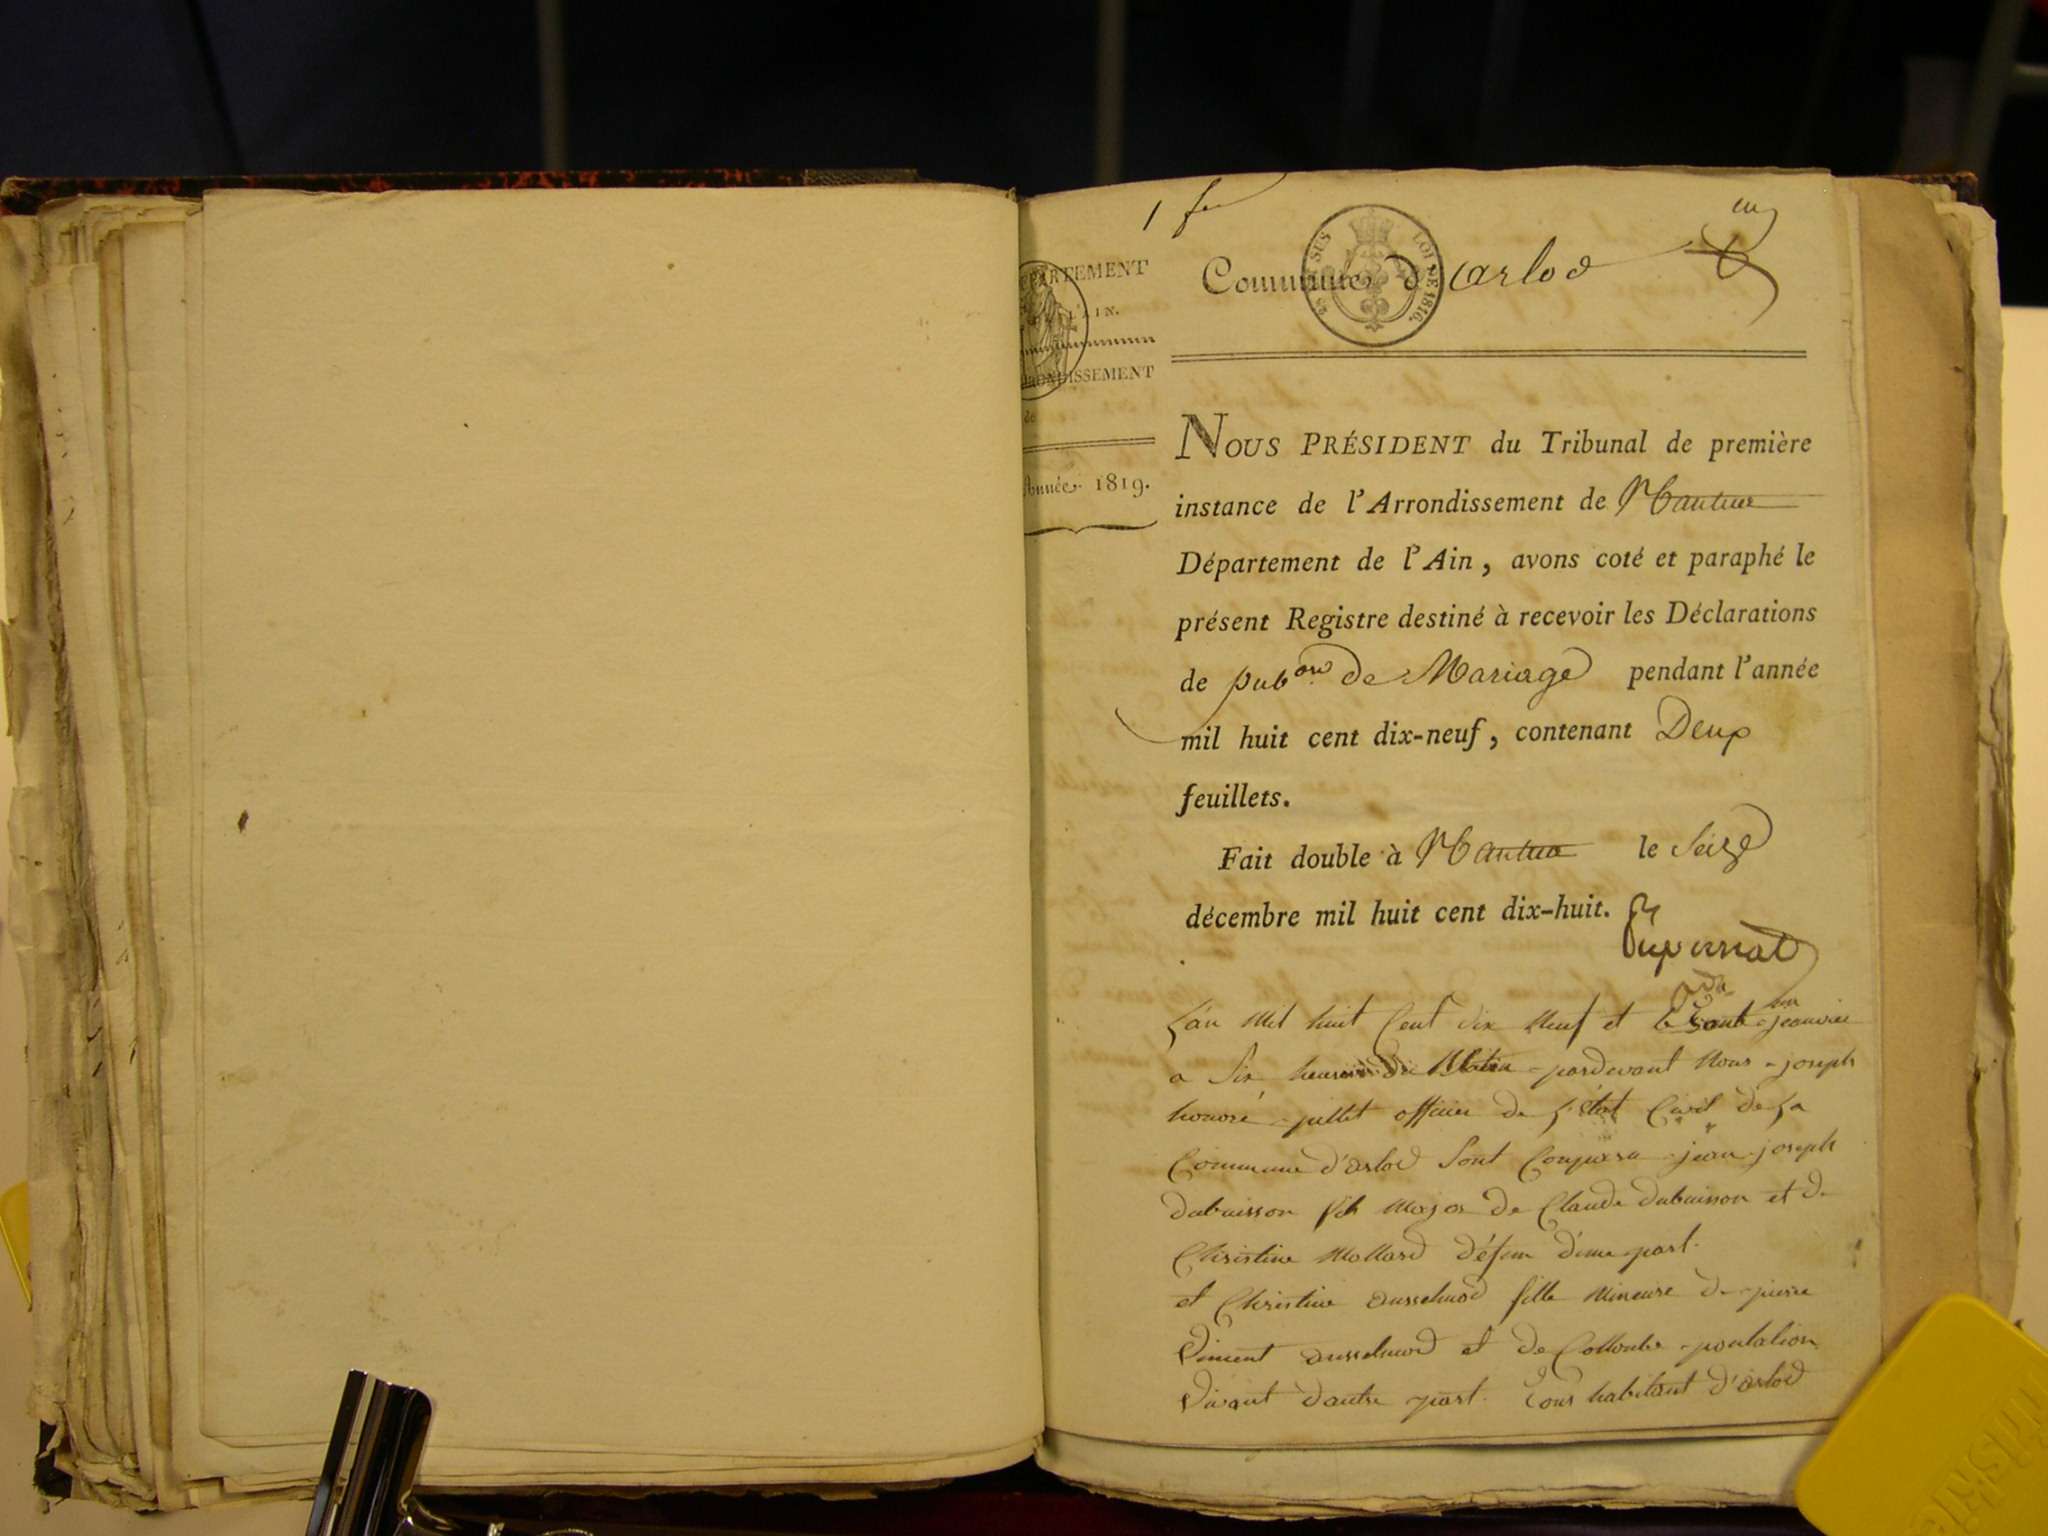 1 f
DÉPARTEMENT
DE L'AIN.
ARRONDISSEMENT
de
Année 1819.
LOI DE 1816.
Commune d'arlod
NOUS PRÉSIDENT du Tribunal de première
instance de l'Arrondissement de Nantua
Département de l'Ain, avons coté et paraphé le
présent Registre destiné à recevoir les Déclarations
de pub.on de Mariage pendant l'année
mil huit cent dix-neuf, contenant Deux
feuillets.
Fait double à Nantua le Seize
décembre mil huit cent dix-huit.
L'an mil huit Cent dix neuf et le trente un janvier
a Six heures du Matin pardevant Nous joseph
honoré pillet officier de L'état Civil de La
Commune d'arlod Sont Comparu jean joseph
dubuisson fils major de Claude dubuisson et de
Christine Mollard défun d'une part.
et Christine ausselmod fille Mineure de pierre
Viment ausselmod et de Collombe
Vivant dautre part. Tous habitant d'arlod